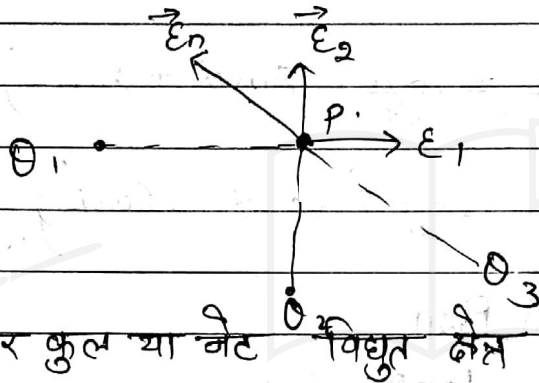 → →
εn ε2
P.
θ1 ε1
θ3
θ2
र कुल या नेट विद्युत क्षेत्र